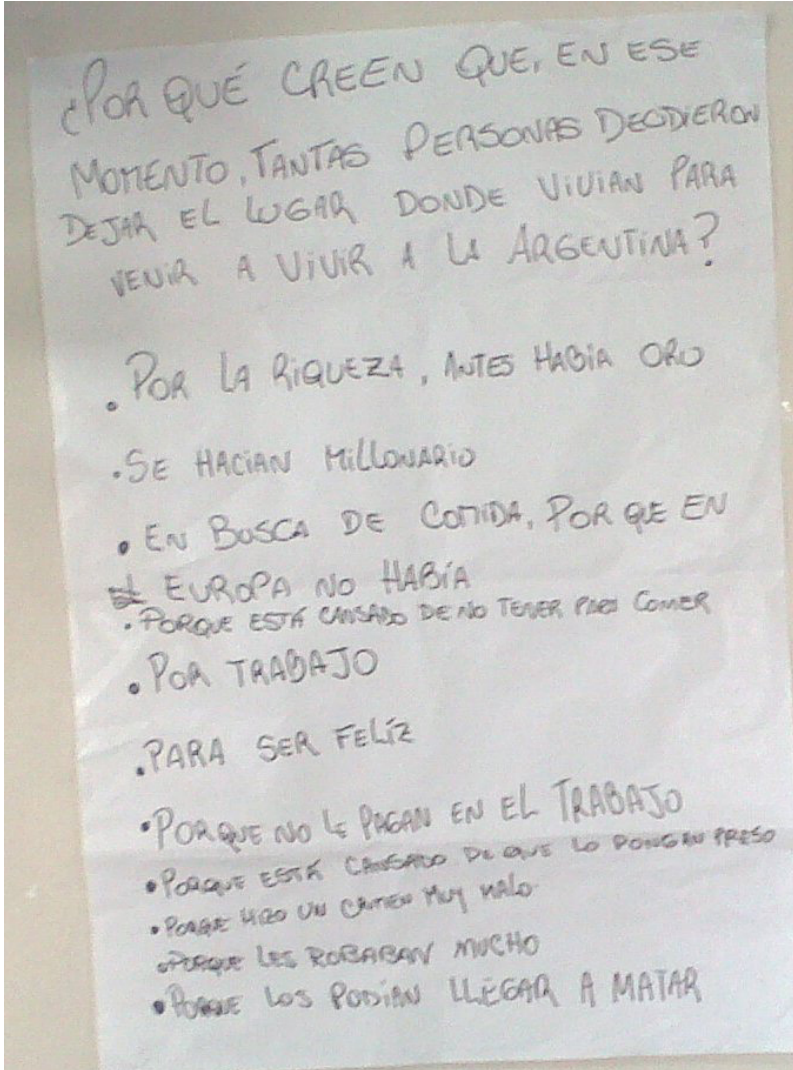 ¿POR QUÉ CREEN QUE, EN ESE
MOMENTO, TANTAS PERSONAS DECIDIERON
DEJAR EL LUGAR DONDE VIVIAN PARA
VENIR A VIVIR A LA ARGENTINA?
. POR LA RIQUEZA, ANTES HABÍA ORO
. SE HACIAN MILLONARIO
. EN BUSCA DE COMIDA, POR QUE EN
EUROPA NO HABÍA
. PORQUE ESTÁ CANSADO DE NO TENER PARA COMER
. POR TRABAJO
. PARA SER FELÍZ
. PORQUE NO LE PAGAN EN EL TRABAJO
. PORQUE ESTÁ CANSADO DE QUE LO PONGAN PRESO
. PORQUE HIZO UN CRIMEN MUY MALO
. PORQUE LES ROBABAN MUCHO
. PORQUE LOS PODÍAN LLEGAR A MATAR